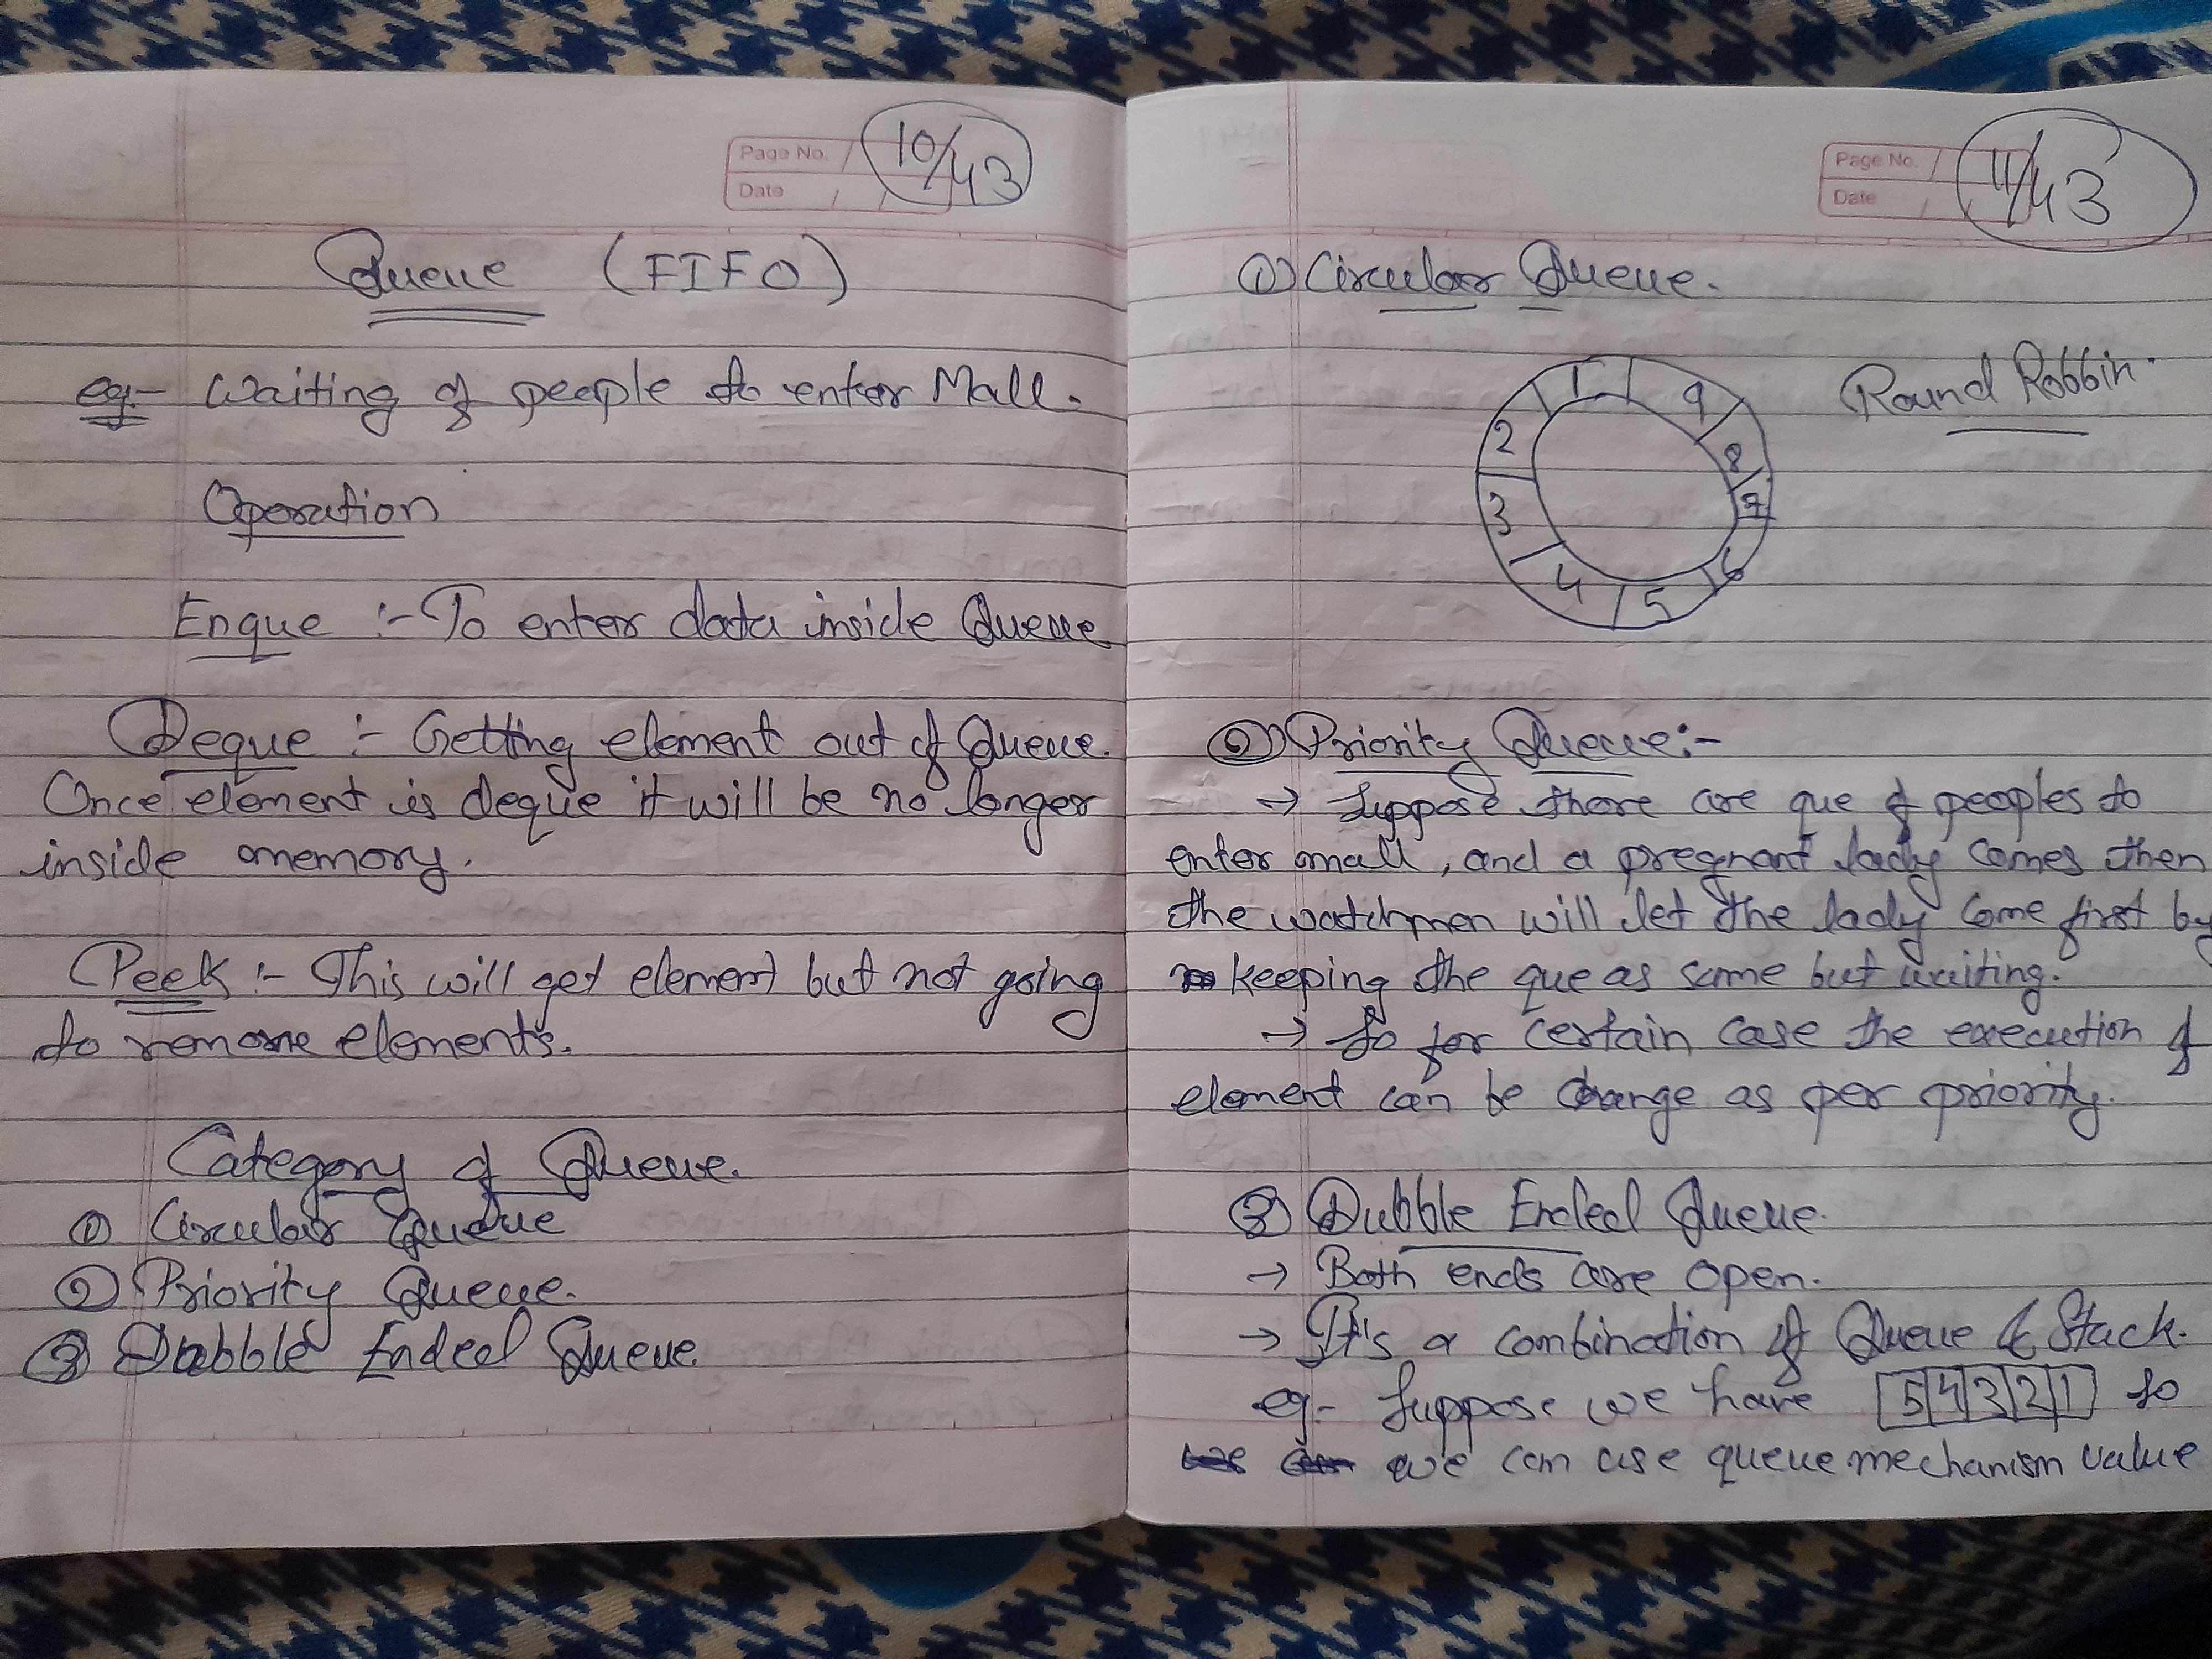 Page No. 10/43
Date / /
Queue (FIFO)
eg:- Waiting of people to enter Mall.
Operation
Enque :- To enter data inside Queue.
Deque :- Getting element out of Queue.
Once element is deque it will be no longer
inside memory.
Peek :- This will get element but not going
to remove elements.
Category of Queue.
① Circular Queue
② Priority Queue.
③ Dubbld Ended Queue.
Page No. 11/43
Date / /
1) Circular Queue.
Round Robbin.
1 2 3 4 5 6 7 8 9
② Priority Queue:-
→ Suppose there are que of peoples to
enter mall, and a pregnant lady comes then
the watchmen will let the lady come first by
keeping the que as same but waiting.
→ So for certain case the execution of
element can be change as per priority.
③ Dubble Ended Queue.
→ Both ends are open.
→ It's a combination of Queue & Stack.
eg:- Suppose we have 5 4 3 2 1 so
we can use queue mechanism value